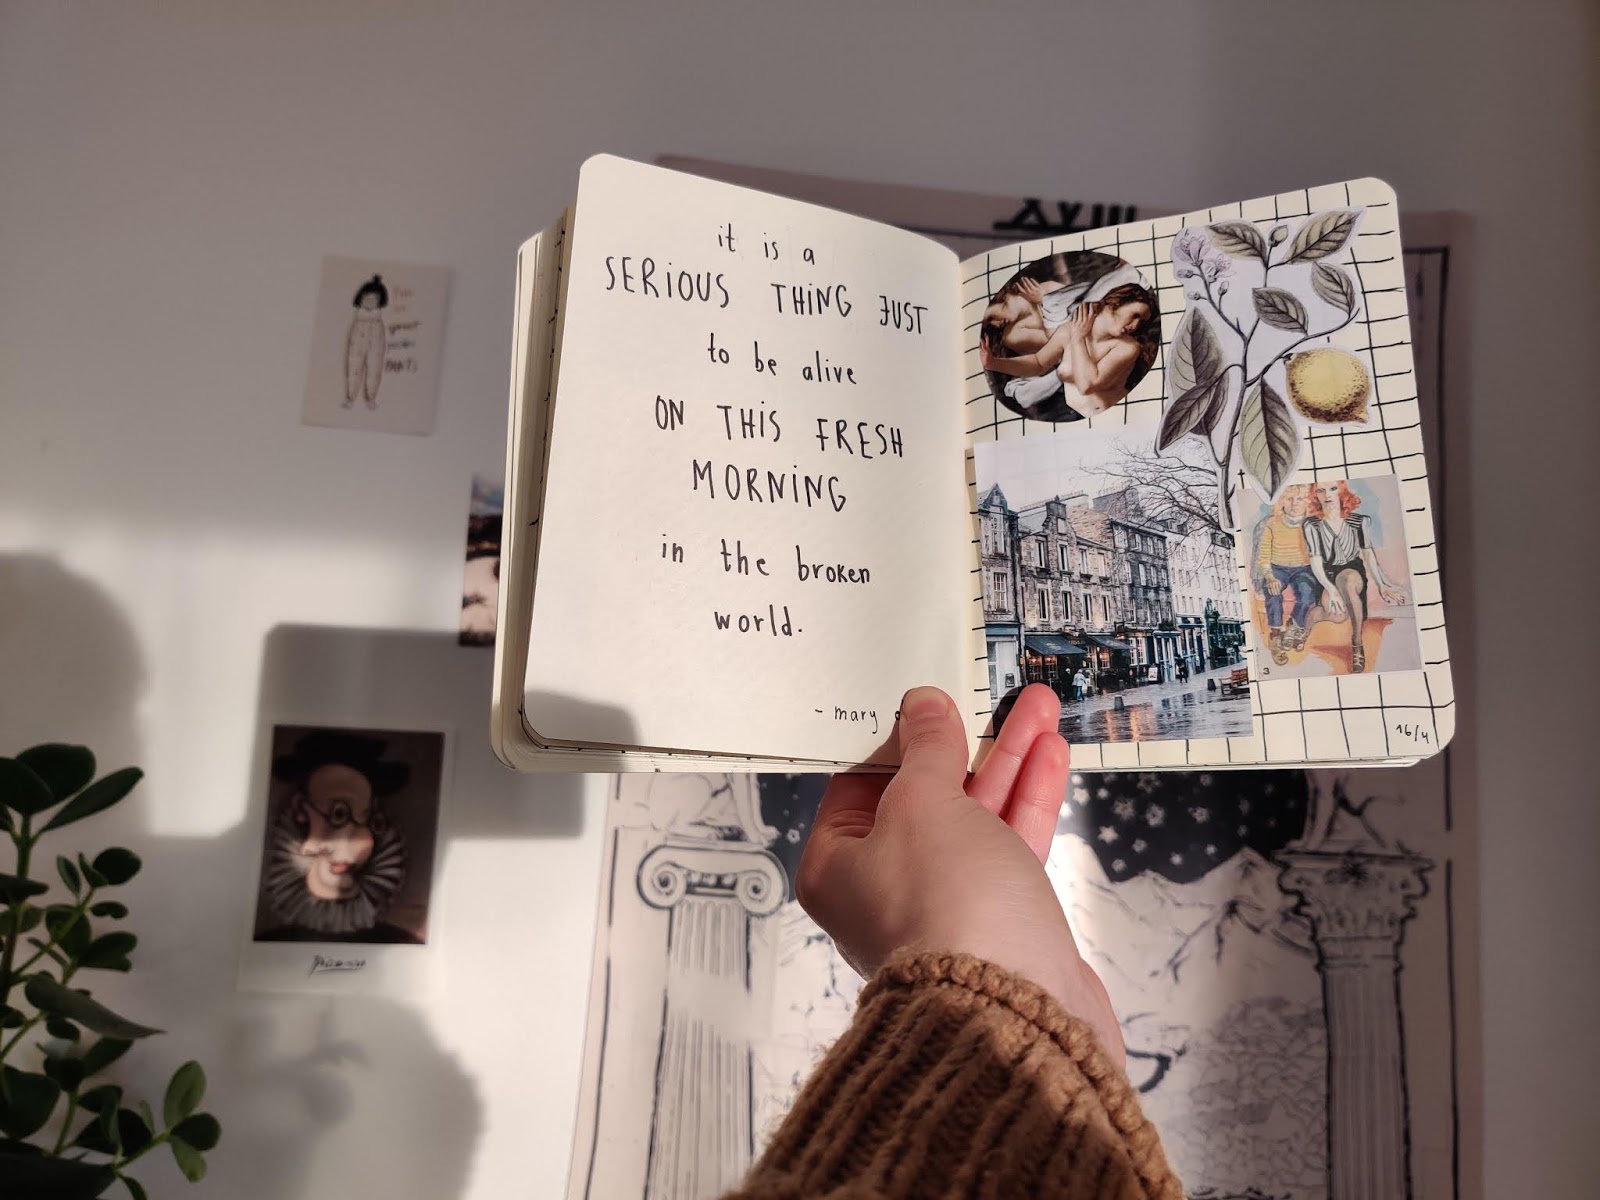 it is a
SERIOUS THING JUST
to be alive
ON THIS FRESH
MORNING
in the broken
world.
- mary
XVIII
3
16/4
Picasso